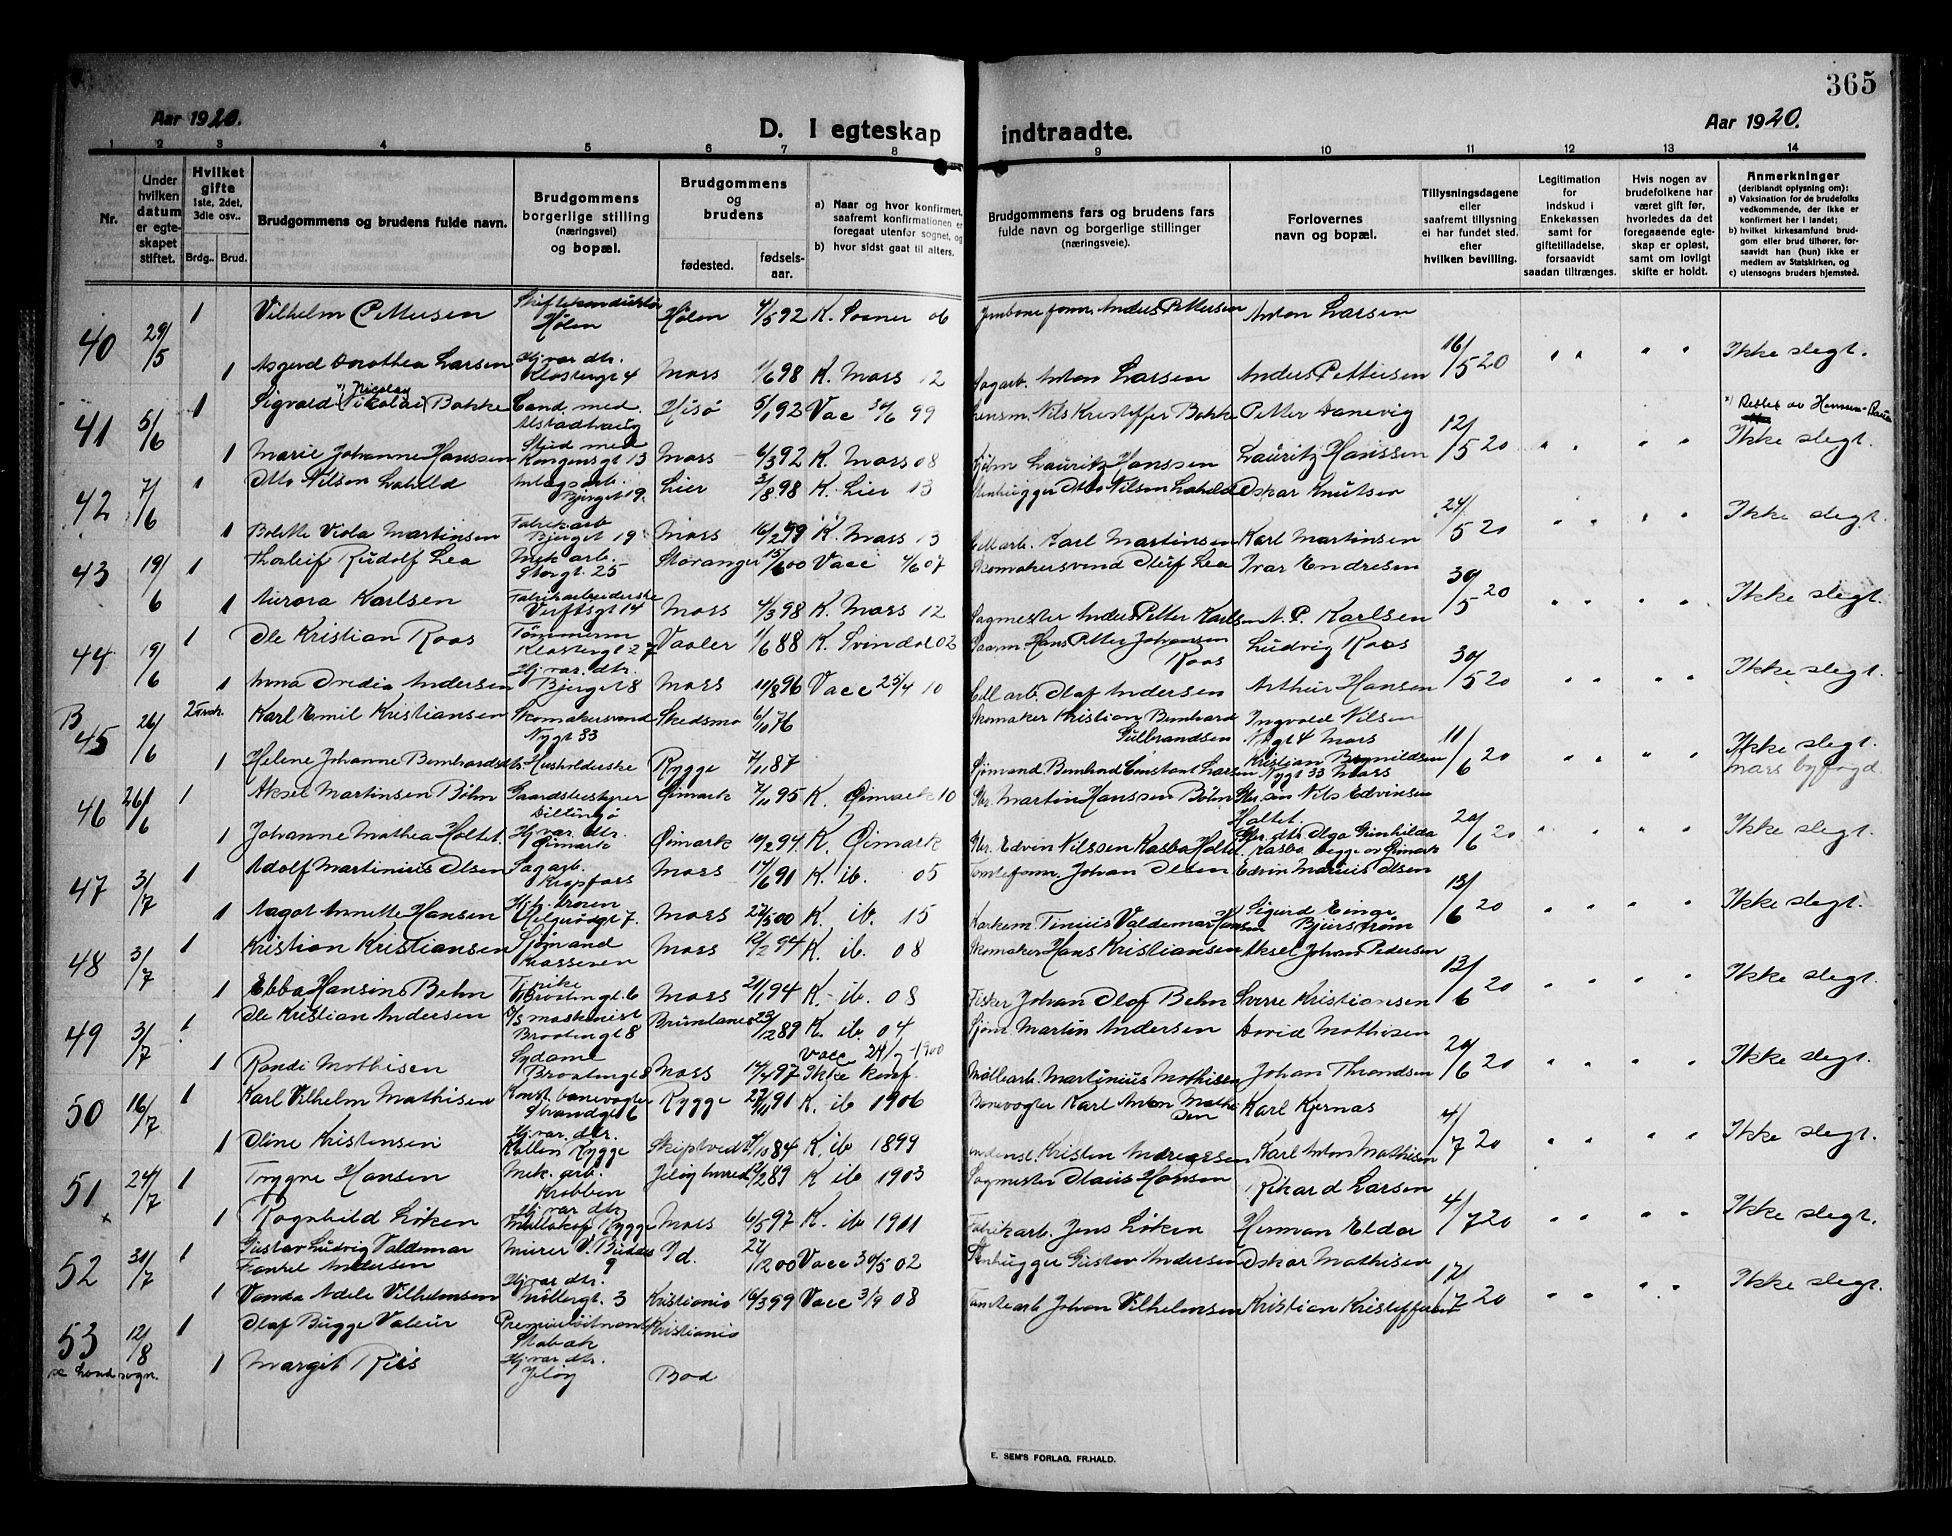 365
Aar 1920.
D. I egteskap indtraadte.
Aar 1920.
1 2 3 4 5 6 7 8 9 10 11 12 13 14
Nr.
Under hvilken datum er egteskapet stiftet.
Hvilket gifte 1ste, 2det, 3die osv..
Brdg.. Brud.
Brudgommens og brudens fulde navn.
Brudgommens borgerlige stilling (næringsvei) og bopæl.
Brudgommens og brudens
fødested.
fødselsaar.
a) Naar og hvor konfirmert, saafremt konfirmationen er foregaat utenfor sognet, og
b) hvor sidst gaat til alters.
Brudgommens fars og brudens fars fulde navn og borgerlige stillinger (næringsveie).
Forlovernes navn og bopæl.
Tillysningsdagene eller saafremt tillysning ei har fundet sted. efter hvilken bevilling.
Legitimation for indskud i Enkekassen samt for giftetilladelse, forsaavidt saadan tiltrænges.
Hvis nogen av brudefolkene har været gift før, hvorledes da det foregaaende egteskap er opløst, samt om lovligt skifte er holdt.
Anmerkninger (deriblandt oplysning om):
a) Vaksination for de brudefolks vedkommende, der ikke er konfirmert her i landet;
b) hvilket kirkesamfund brudgom eller brud tilhører, forsaavidt han (hun) ikke er medlem av Statskirken, og
c) utensogns bruders hjemsted.
40 29/5 1 Vilhelm Pettersen Hølen Hølen 4/5 92 K. Soner 06 Anders Pettersen Anton Larsen
1 Asgerd Dorothea Larsen Hj.var. dtr. Klostergt 4 Moss 1/6 98 K. Moss 12 Sagarb. Anton Larsen Anders Pettersen 16/5 20 " " " " Ikke slegt.
41 5/6 1 Sigvald Nikolai x) Nicolay Bakke Cand. med. Alstadhaug Hisø 5/1 92 Vac 30/6 99 Lensm. Nils Kristoffer Bakke Petter Danevig
1 Marie Johanne Hanssen Stud med Kongensgt 13 Moss 6/3 92 K. Moss 08 Lauritz Hanssen Lauritz Hanssen 12/5 20 " " " " Ikke slegt.
42 7/6 1 Otto Nilsen Laheld Bjerget 19. Lier 3/8 98 K. Lier 13 Stenhugger Otto Nilsen Laheld Oskar Knutsen
1 Bolette Viola Martinsen Fabrikarb Bjerget 19 Moss 16/2 99 K. Moss 13 Cell.arb. Karl Martinsen Karl Martinsen 24/5 20 " " " " Ikke slegt.
43 19/6 1 Thorleif Rudolf Lea Mek arb. Storgt. 25 Stavanger 15/6 00 Vacc 4/6 07 Skomakersvend Oluf Lea Ivar Endresen
1 Aurora Karlsen Fabrikarbeiderske Verftsgt 14 Moss 4/3 98 K. Moss 12 Sagmester Anders Petter Karlsen A. P. Karlsen 30/5 20 " " " " Ikke slegt.
44 19/6 1 Ole Kristian Roos Tømmerm Klostergt 27 Vaaler 1/6 88 K. Svindal 02 Hans Petter Johansen Roos Ludvig Roos
1 Anna Ovedia Andersen Hj.var. dtr. Bjerget 8 Moss 11/8 96 Vacc 25/4 10 Cell arb. Olaf Andersen Arthur Hansen 30/5 20 " " " " Ikke slegt.
B 45 26/6 Karl Emil Kristiansen Skomakersvend Nygt 33 Skedsmo 6/10 76 Skomaker Kristian Bernhard Gulbrandsen Ingvald Nilsen Nygt 4 Moss
1 Helene Johanne Bernhardsdtr. Husholderske Rygge 7/11 87 Sjømand Bernhard Constant Larsen Kristian Nygt 33 Moss 11/6 20 " " " " Ikke slegt. Moss byfogd.
46 26/6 1 Aksel Martinsen Bøhn Gaardbestyrer Dillingø Øimark 7/11 95 K. Øimark 10 Gbr. Martin Hanssen Bøhn Gbr. søn Nils Edvinsen Holtet.
1 Johanne Mathea Holtet. Hj.var. dtr. Øimark Øimark 10/2 94. K. Øimark Gbr. Edvin Nilssen Kasbo Holtet. Gbr. dtr. Olga Gunhilda Kasbo begge av Øimark 20/6 20 " " " " Ikke slegt.
47 3/7 1 Adolf Martinius Olsen Sagarb. Krapfoss Moss 17/6 91 K. ib. 05 Tomteform. Johan Olsen Edvin Marius Olsen
1 Aagot Annette Hansen Helgerødgt 7. Moss 27/5 00 K. ib. 15 Tinius Valdemar Hansen Sigurd Einge Bjurstrøm 13/6 20 " " " " Ikke slegt.
48 3/7 1 Kristian Kristiansen Sjømand Moss 12/2 94 K. ib. 08 Skomaker Hans Kristiansen Aksel Johan Pedersen
1 Ebba Hansine Behn Moss 21/1 94 K. ib. 08 Fisker Johan Olaf Behn Sverre Kristiansen 13/6 20 " " " " Ikke slegt.
49 3/7 1 Ole Kristian Andersen D/S maskinist Brostengt 8 Brunlanes 23/12 89 K. ib. 04 Sjøm Martin Andersen David Mathisen
1 Randi Mathisen Sydame Brostengt 8 Moss 14/4 97 vacc 24/7 1900 Ikke konf. Møllearb. Martinius Mathisen Johan Throndsen 20/6 20 " " " " Ikke slegt.
50 16/7 1 Karl Vilhelm Mathisen Konst. banevogter Strandgt 6 Rygge 27/11 91 K. ib 1906 Banevogter Karl Anton Mathisen Karl Kjernas
1 Oline Kristensen Hj.var. dtr. Kollen Rygge Skiptvedt 4/10 84 K ib 1899 Kristen Andreassen Karl Anton Mathisen 4/7 20 " " " " Ikke slegt.
51 x 24/7 1 Trygve Hansen Mek. arb. Krabben 12/2 89 K ib 1903 Sagmester Olaus Hansen Rikard Larsen
1 Ragnhild Løken Hj.var dtr. Rygge Moss 6/5 97 K. ib 1911 Fabrikarb. Jens Løken Herman Eldor 4/7 20 " " " " Ikke slegt.
52 31/7 1 Gustav Ludvig Valdemar Fankel Andersen Murer V. Buddes 9 Id. 27/12 00 Vacc 30/5 02 Stenhugger Gustav Andersen Oskar Mathisen
1 Vanda Adele Vilhelmsen Hj.var dtr. Møllergt. 3 Kristiania 16/3 99 Vacc 3/9 08 Tomtearb Johan Vilhelmsen Kristian Kristoffersen 17/7 20 " " " " Ikke slegt.
53 12/8 1 Olaf Bugge Valeur Premierløitnant Stabæk Kristiania
se landsogn. 1 Margit Riis Hj.var dtr. Jeløy Bod
E. SEM'S FORLAG, FR.HALD.